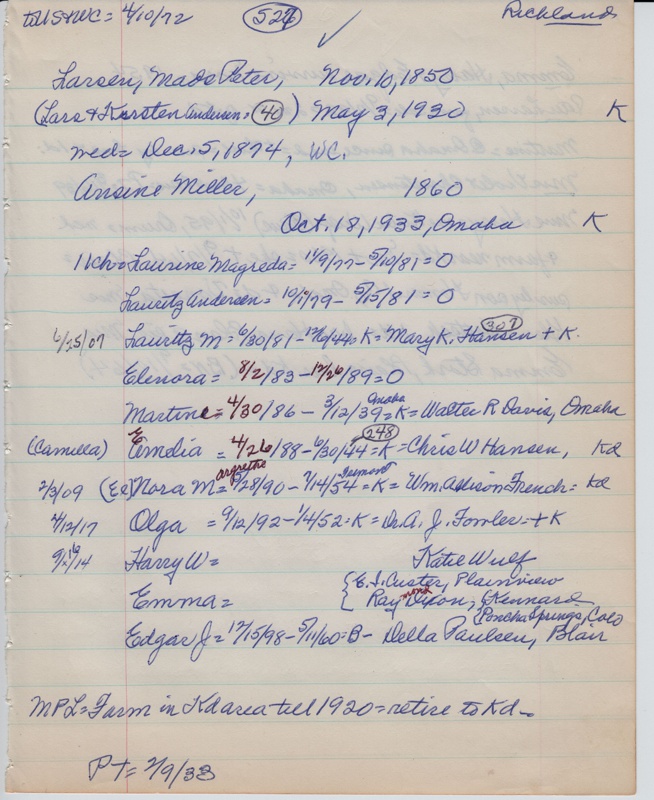 to US & WC = 4/10/72 527 ✓ Richland
Larsen, Mads Peter, Nov. 10, 1850
(Lars & Karsten Andersen = 40) May 3, 1930 K
wed = Dec. 5, 1874, WC.
Ansine Miller, 1860
Oct. 18, 1933, Omaha K
11 ch = Laurine Magreda = 11/9/77 - 5/10/81 = O
Lauritz Andersen = 10/1/79 - 5/15/81 = O
6/25/07 Lauritz M = 6/30/81 - 12/6/44 = K = Mary K. Hansen + K. 307
Elenora = 8/2/83 - 12/26/89 = O
Martine = 4/30/86 - 3/12/39 = K = Walter R Davis, Omaha Omaha
(Camilla) Emelia = 4/26/88 - 6/30/44 = K = Chris W Hansen, Kd 248
2/3/09 (El) Nora M = 5/28/90 - 7/14/54 = K = Wm. Addison French = Kd argrethe Fremont
4/12/17 Olga = 9/12/92 - 1/4/52 = K = Dr. A. J. Fowler = + K
9/16/14 Harry W = Katie Wulf
Emma = { E. I. Custer, Plainview
Raymond Dixon, Kennard
Poncha Springs, Colo
Edgar J = 12/15/98 - 5/11/60 = B - Della Paulsen, Blair
MPL = Farm in Kd area till 1920 = retire to Kd -
PT = 2/9/38